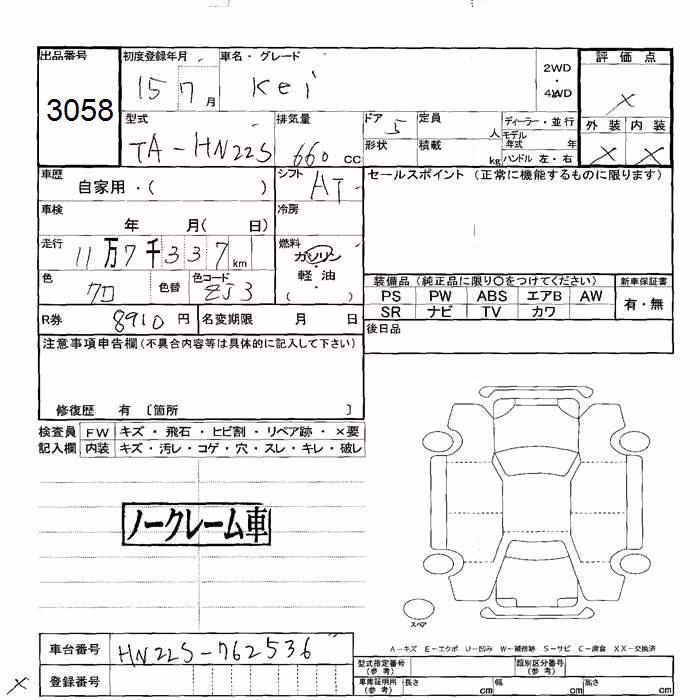 出品番号 初度登録年月 車名・グレード 評価点
3058 15 7 月 Kei 2WD 4WD ×
型式 排気量 ドア 定員 ディーラー・並行 外装 内装
TA-HN22S 660 cc 5 人 モデル年式 年 × ×
形状 積載 kg ハンドル 左・右
車歴 自家用・( ) シフト AT セールスポイント (正常に機能するものに限ります)
車検 年 月( 日) 冷房
走行 11万7千337 km 燃料 ガソリン・軽油 ( )
色 クロ 色替 色コード ZJ3
装備品 (純正品に限り〇をつけてください) 新車保証書
PS PW ABS エアB AW 有・無
SR ナビ TV カワ
R券 8910 円 名変期限 月 日 後日品
注意事項申告欄 (不具合内容等は具体的に記入して下さい)
修復歴 有 〔箇所 〕
検査員 FW キズ・飛石・ヒビ割・リペア跡・×要
記入欄 内装 キズ・汚レ・コゲ・穴・スレ・キレ・破レ
ノークレーム車
スペア
車台番号 HN22S-762536
A-キズ E-エクボ U-凹み W-補修跡 S-サビ C-腐食 XX-交換済
型式指定番号 (参考) 類別区分番号 (参考)
× 登録番号 車庫証明用 (参考) 長さ cm 幅 cm 高さ cm